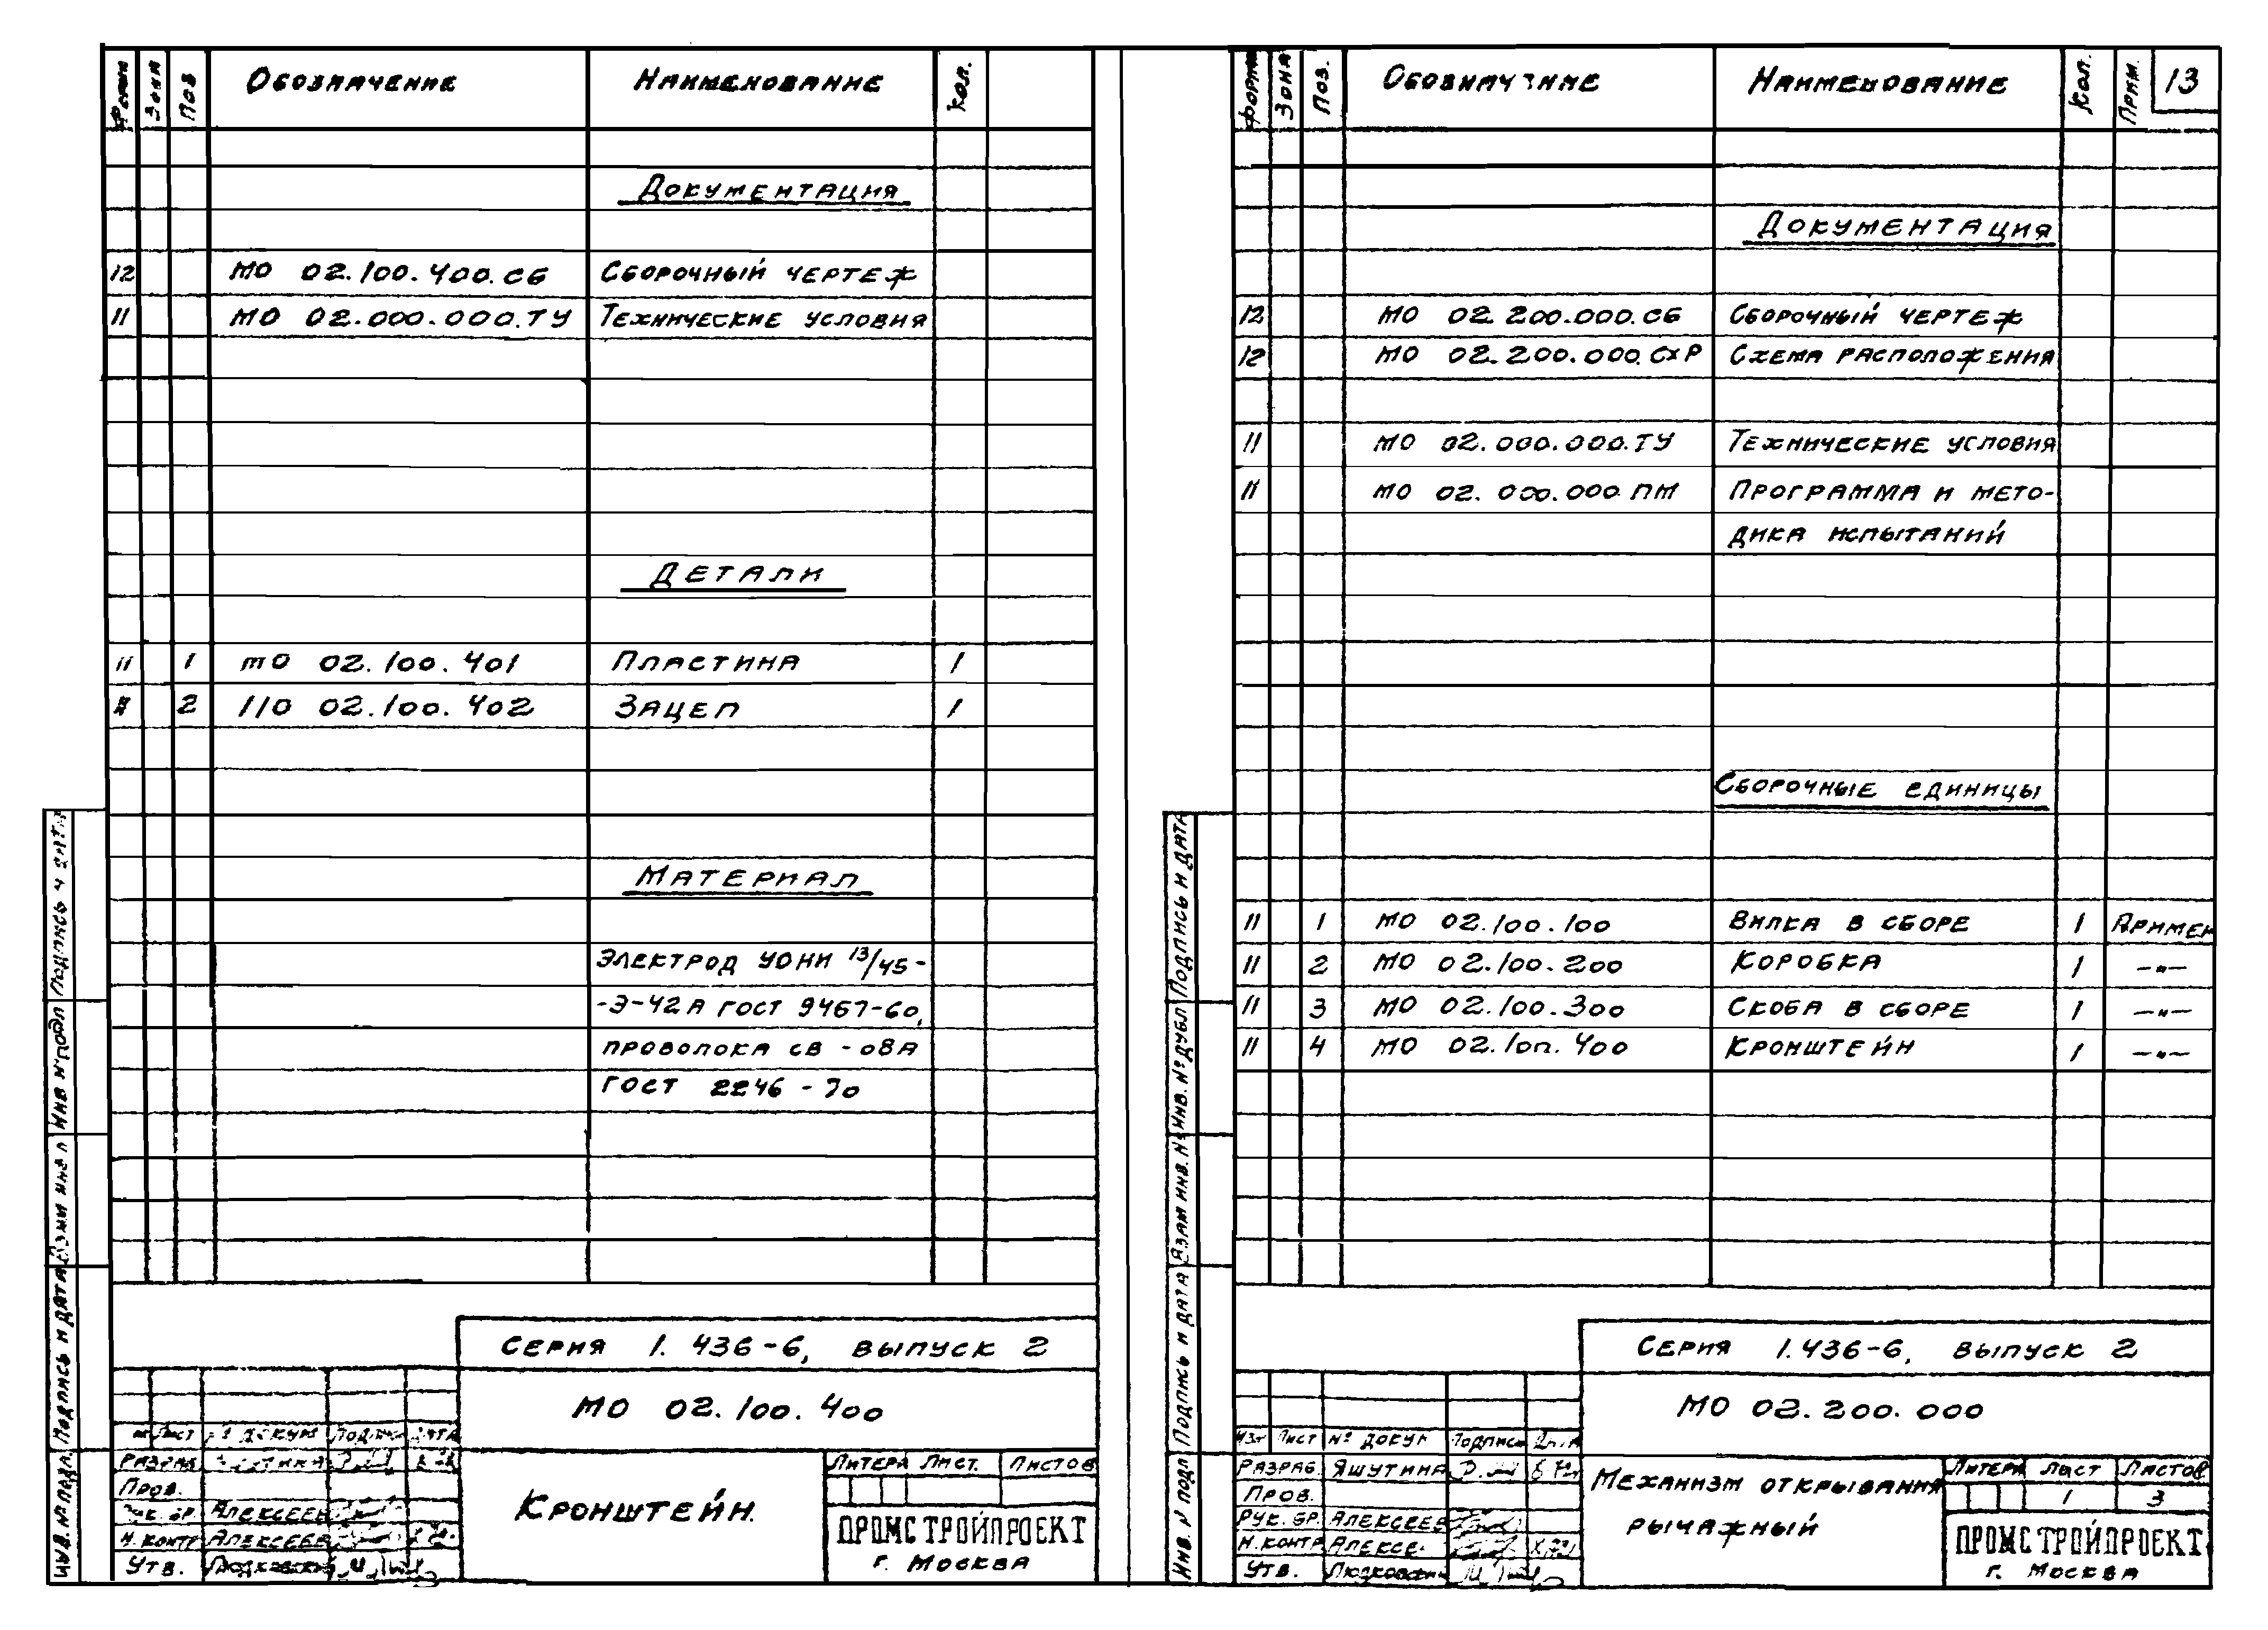 Формат Зона Поз Обозначение Наименование Кол.
Документация
12 МО 02.100.400.СБ Сборочный чертеж
11 МО 02.000.000.ТУ Технические условия
Детали
11 1 МО 02.100.401 Пластина 1
11 2 МО 02.100.402 Зацеп 1
Материал
Электрод УОНИ 13/45-
-Э-42А ГОСТ 9467-60,
проволока СВ-08А
ГОСТ 2246-70
Серия 1.436-6, выпуск 2
МО 02.100.400
Лист № докум Подпись Дата
Разраб
Пров.
Рук. гр. Алексеев
Н.контр Алексеев
Утв.
Кронштейн.
Литера Лист. Листов
ПРОМСТРОЙПРОЕКТ
г. Москва
Инв. № подл. Подпись и дата Взам инв № Инв № подл Подпись и дата
Формат Зона Поз. Обозначение Наименование Кол. Прим. 13
Документация
12 МО 02.200.000.СБ Сборочный чертеж
12 МО 02.200.000.СХР Схема расположения
11 МО 02.000.000.ТУ Технические условия
11 МО 02.000.000.ПМ Программа и мето-
дика испытаний
Сборочные единицы
11 1 МО 02.100.100 Вилка в сборе 1 Примен
11 2 МО 02.100.200 Коробка 1 —„—
11 3 МО 02.100.300 Скоба в сборе 1 —„—
11 4 МО 02.100.400 Кронштейн 1 —„—
Серия 1.436-6, выпуск 2
МО 02.200.000
Изм Лист № докум Подпись Дата
Разраб. Яшутина
Пров.
Рук. гр. Алексеев
Н.контр Алексе
Утв.
Механизм открывания
рычажный
Литера Лист Листов
1 3
ПРОМСТРОЙПРОЕКТ
г. Москва
Инв. № подл Подпись и дата Взам инв. № Инв. № дубл Подпись и дата